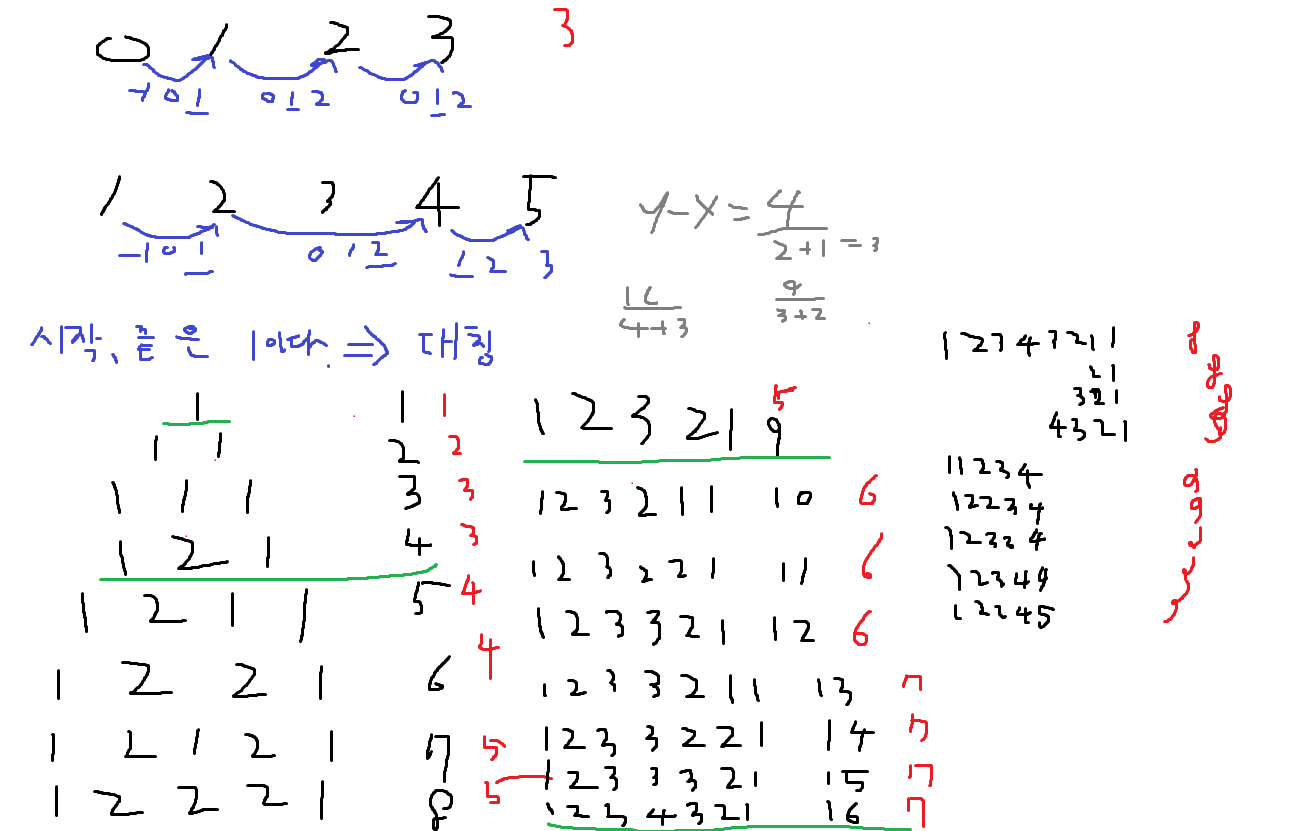 0 1 2 3 3
-1 0 1 0 1 2 0 1 2
1 2 3 4 5
-1 0 1 0 1 2 1 2 3
Y-X = 4
2+1 = 3
16
4+3
9
3+2
시작, 끝 은 1이다. ⇒ 대칭
1 1 1
1 1 2 2
1 1 1 3 3
1 2 1 4 3
1 2 1 1 5 4
1 2 2 1 6 4
1 2 1 2 1 7 5
1 2 2 2 1 8 5
1 2 3 2 1 9 5
1 2 3 2 1 1 10 6
1 2 3 2 2 1 11 6
1 2 3 3 2 1 12 6
1 2 3 3 2 1 1 13 7
1 2 3 3 2 2 1 14 7
1 2 3 3 3 2 1 15 7
1 2 3 4 3 2 1 16 7
21
321
4321
11234 9
12234 9